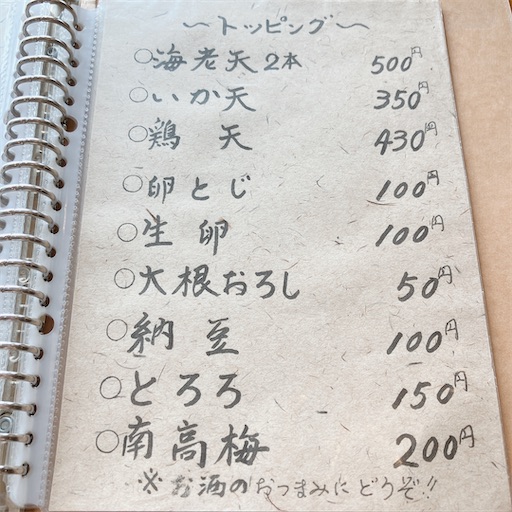 〜トッピング〜
○海老天2本 500円
○いか天 350円
○鶏天 430円
○卵とじ 100円
○生卵 100円
○大根おろし 50円
○納豆 100円
○とろろ 150円
○南高梅 200円
※お酒のおつまみにどうぞ!!